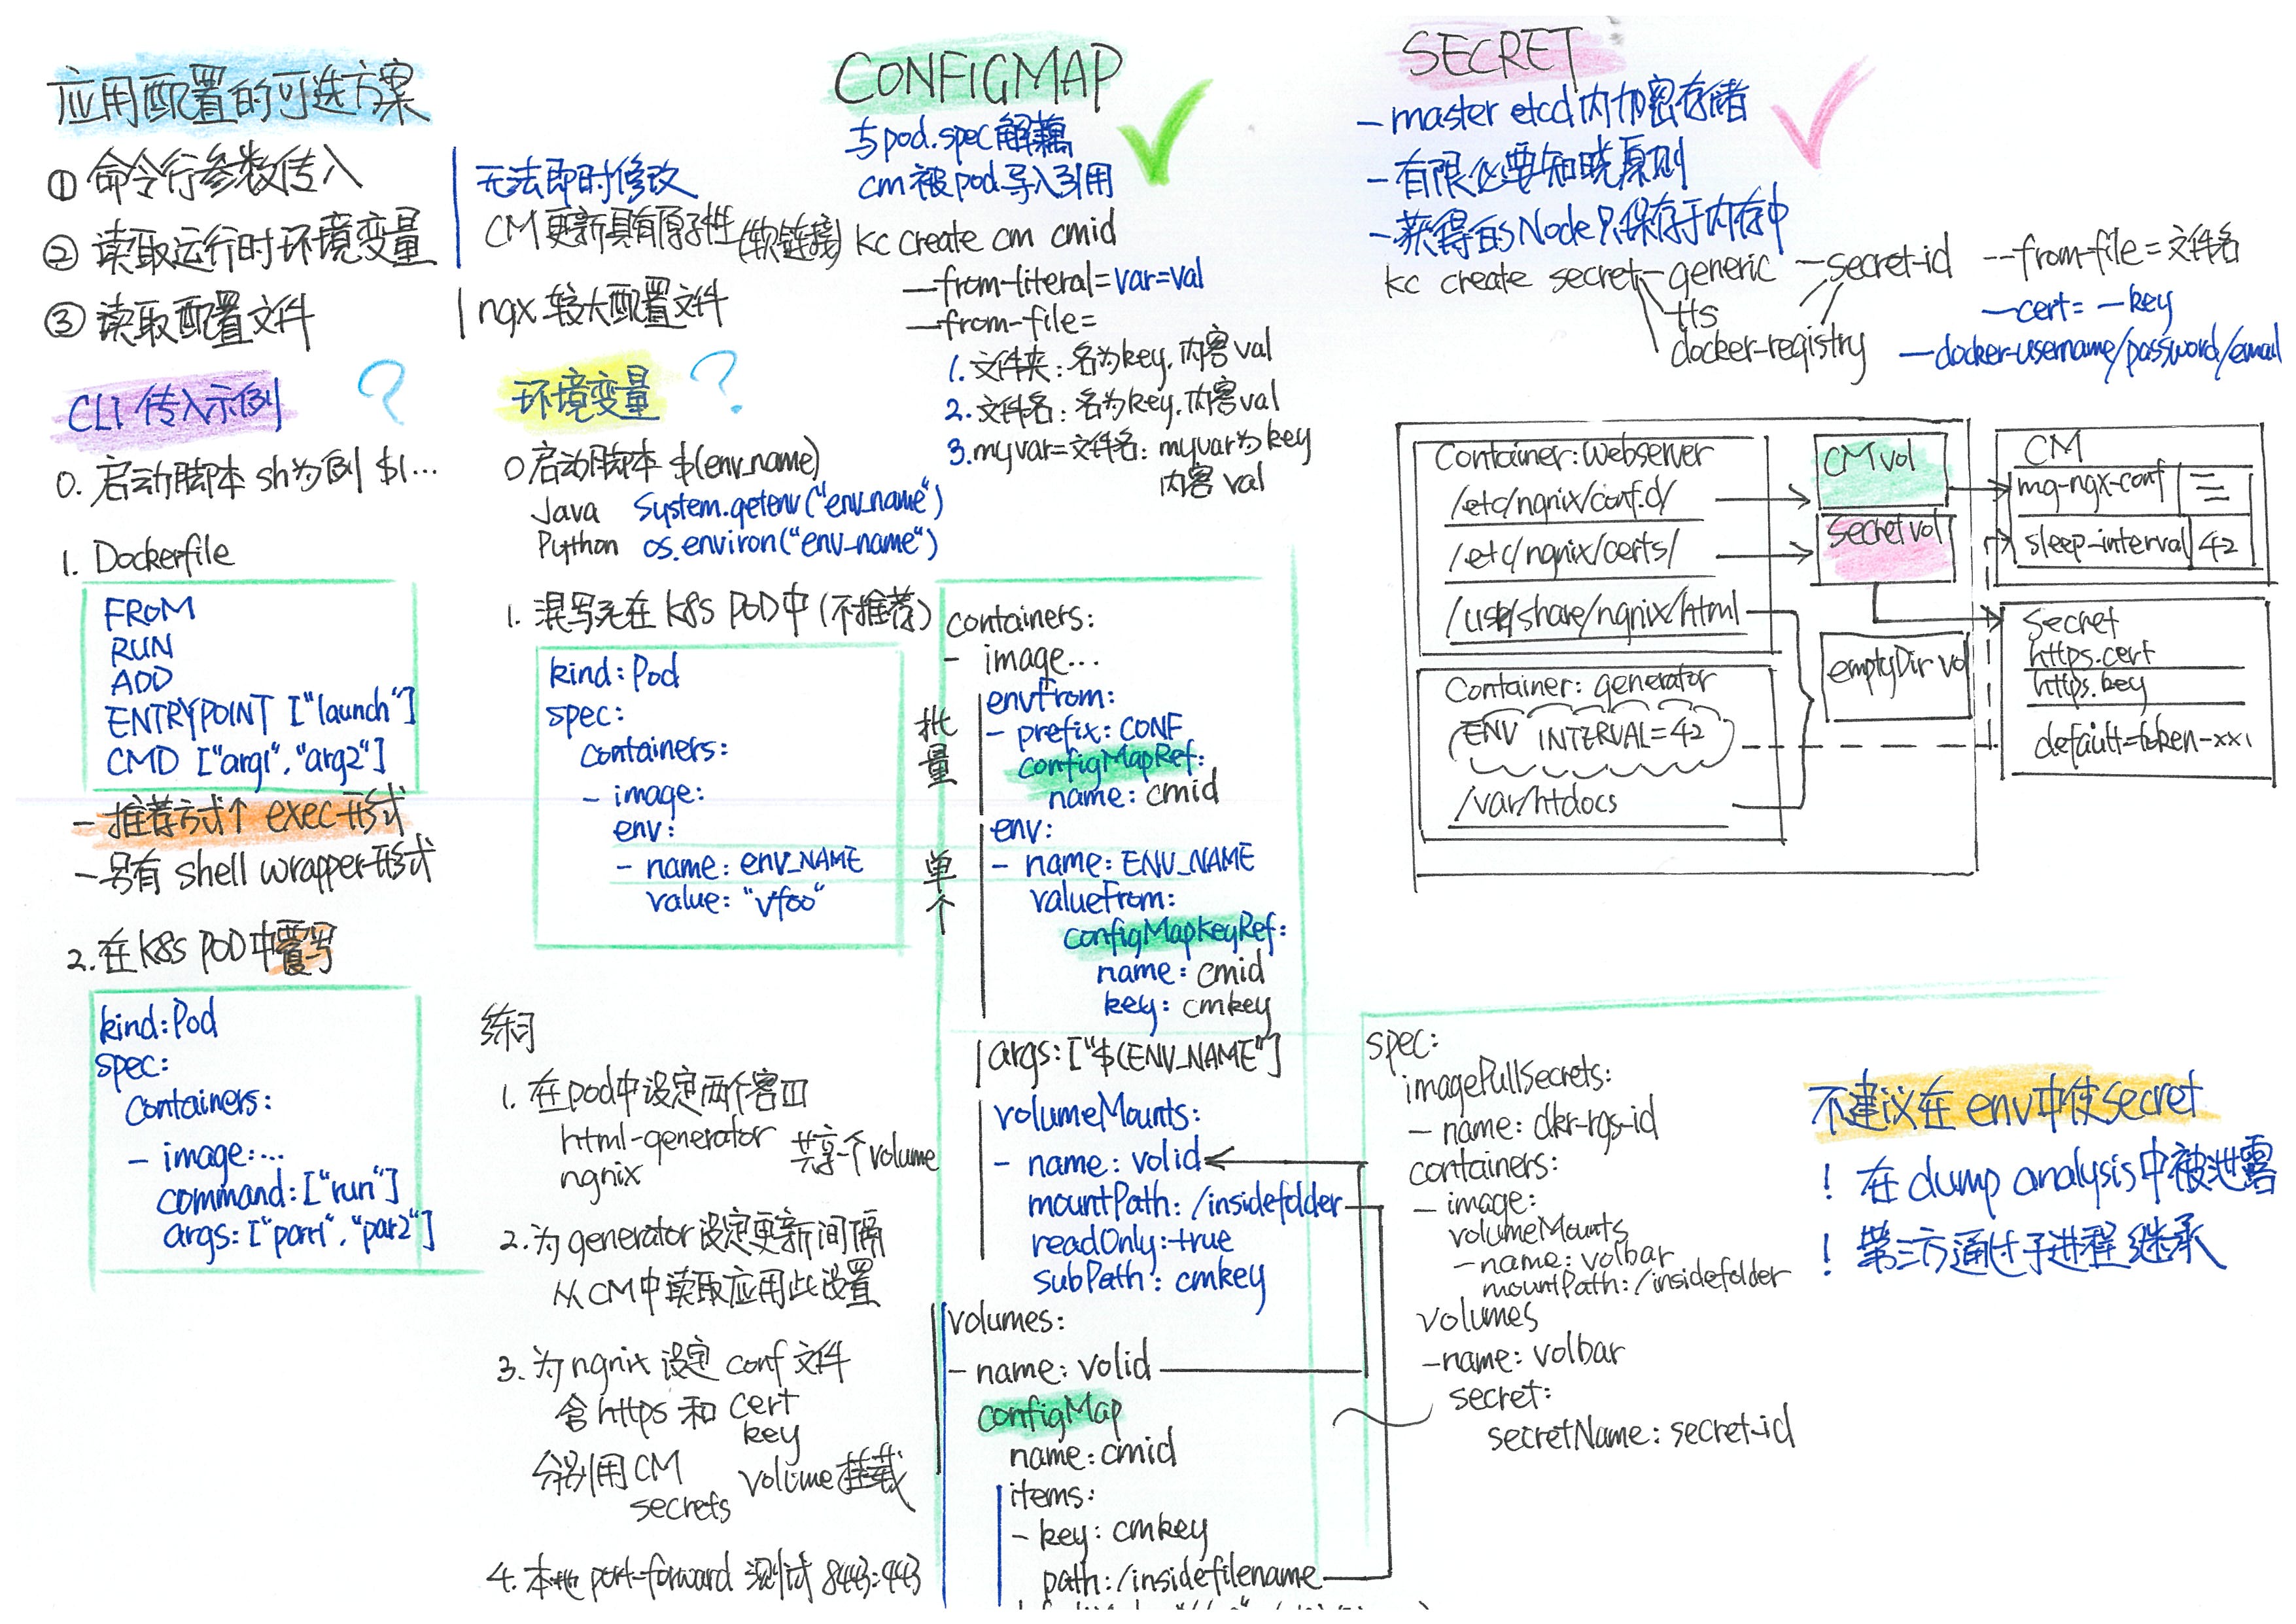 应用配置的可选方案
① 命令行参数传入
② 读取运行时环境变量
③ 读取配置文件
无法即时修改
CM更新具有原子性(软链接)
ngx 较大配置文件
CLI 传入示例
?
0. 启动脚本 sh为例 $1...
1. Dockerfile
FROM
RUN
ADD
ENTRYPOINT ["launch"]
CMD ["arg1","arg2"]
- 推荐方式↑ exec形式
- 另有 shell wrapper形式
2. 在K8S POD中覆写
kind:Pod
spec:
containers:
- image:...
command:["run"]
args:["par1","par2"]
环境变量
?
0 启动脚本 $(env_name)
Java System.getenv("env_name")
Python os.environ("env_name")
1. 混写先在 K8S POD中(不推荐)
kind:Pod
spec:
containers:
- image:
env:
- name: env_NAME
value: "vfoo"
练习
1. 在pod中设定两个容口
html-generator
ngnix
共享个volume
2. 为generator设定更新间隔
从CM中读取应用此设置
3. 为ngnix 设定 conf 文件
含https 和 cert
key
分别用CM
secrets
volume挂载
4. 本地 port-forward 测试 8443:443
CONFIGMAP
与pod.spec解藕
cm被pod导入引用
kc create cm cmid
--from-literal=var=val
--from-file=
1. 文件夹: 名为key.内容val
2. 文件名: 名为key.内容val
3. myvar=文件名: myvar为key
内容 val
containers:
- image...
批量
envFrom:
- prefix: CONF
configMapRef:
name: cmid
单个
env:
- name: ENV_NAME
valueFrom:
configMapKeyRef:
name: cmid
key: cmkey
args:["$(ENV_NAME"]
volumeMounts:
- name: volid
mountPath: /insidefolder
readOnly:true
subPath: cmkey
volumes:
- name: volid
configMap
name: cmid
items:
- key: cmkey
path:/insidefilename
SECRET
- master etcd内加密存储
- 有限必要知晓原则
- 获得的Node只保存于内存中
kc create secret generic
tls
docker-registry
secret-id
--from-file=文件名
--cert= --key
--docker-username/password/email
Container:Webserver
/etc/ngnix/conf.d/
/etc/ngnix/certs/
/usr/share/ngnix/html
Container: generator
ENV INTERVAL=42
/var/htdocs
CM vol
secret vol
emptyDir vol
CM
mg-ngx-conf
sleep-interval 42
Secret
https.cert
https.key
default=token-xx
spec:
imagePullSecrets:
- name: dkr-rgs-id
containers:
- image:
volumeMounts
- name: volbar
mountPath:/insidefolder
volumes
- name: volbar
secret:
secretName: secret-id
不建议在 env中使secret
! 在 dump analysis中被泄露
! 第三方通过子进程继承